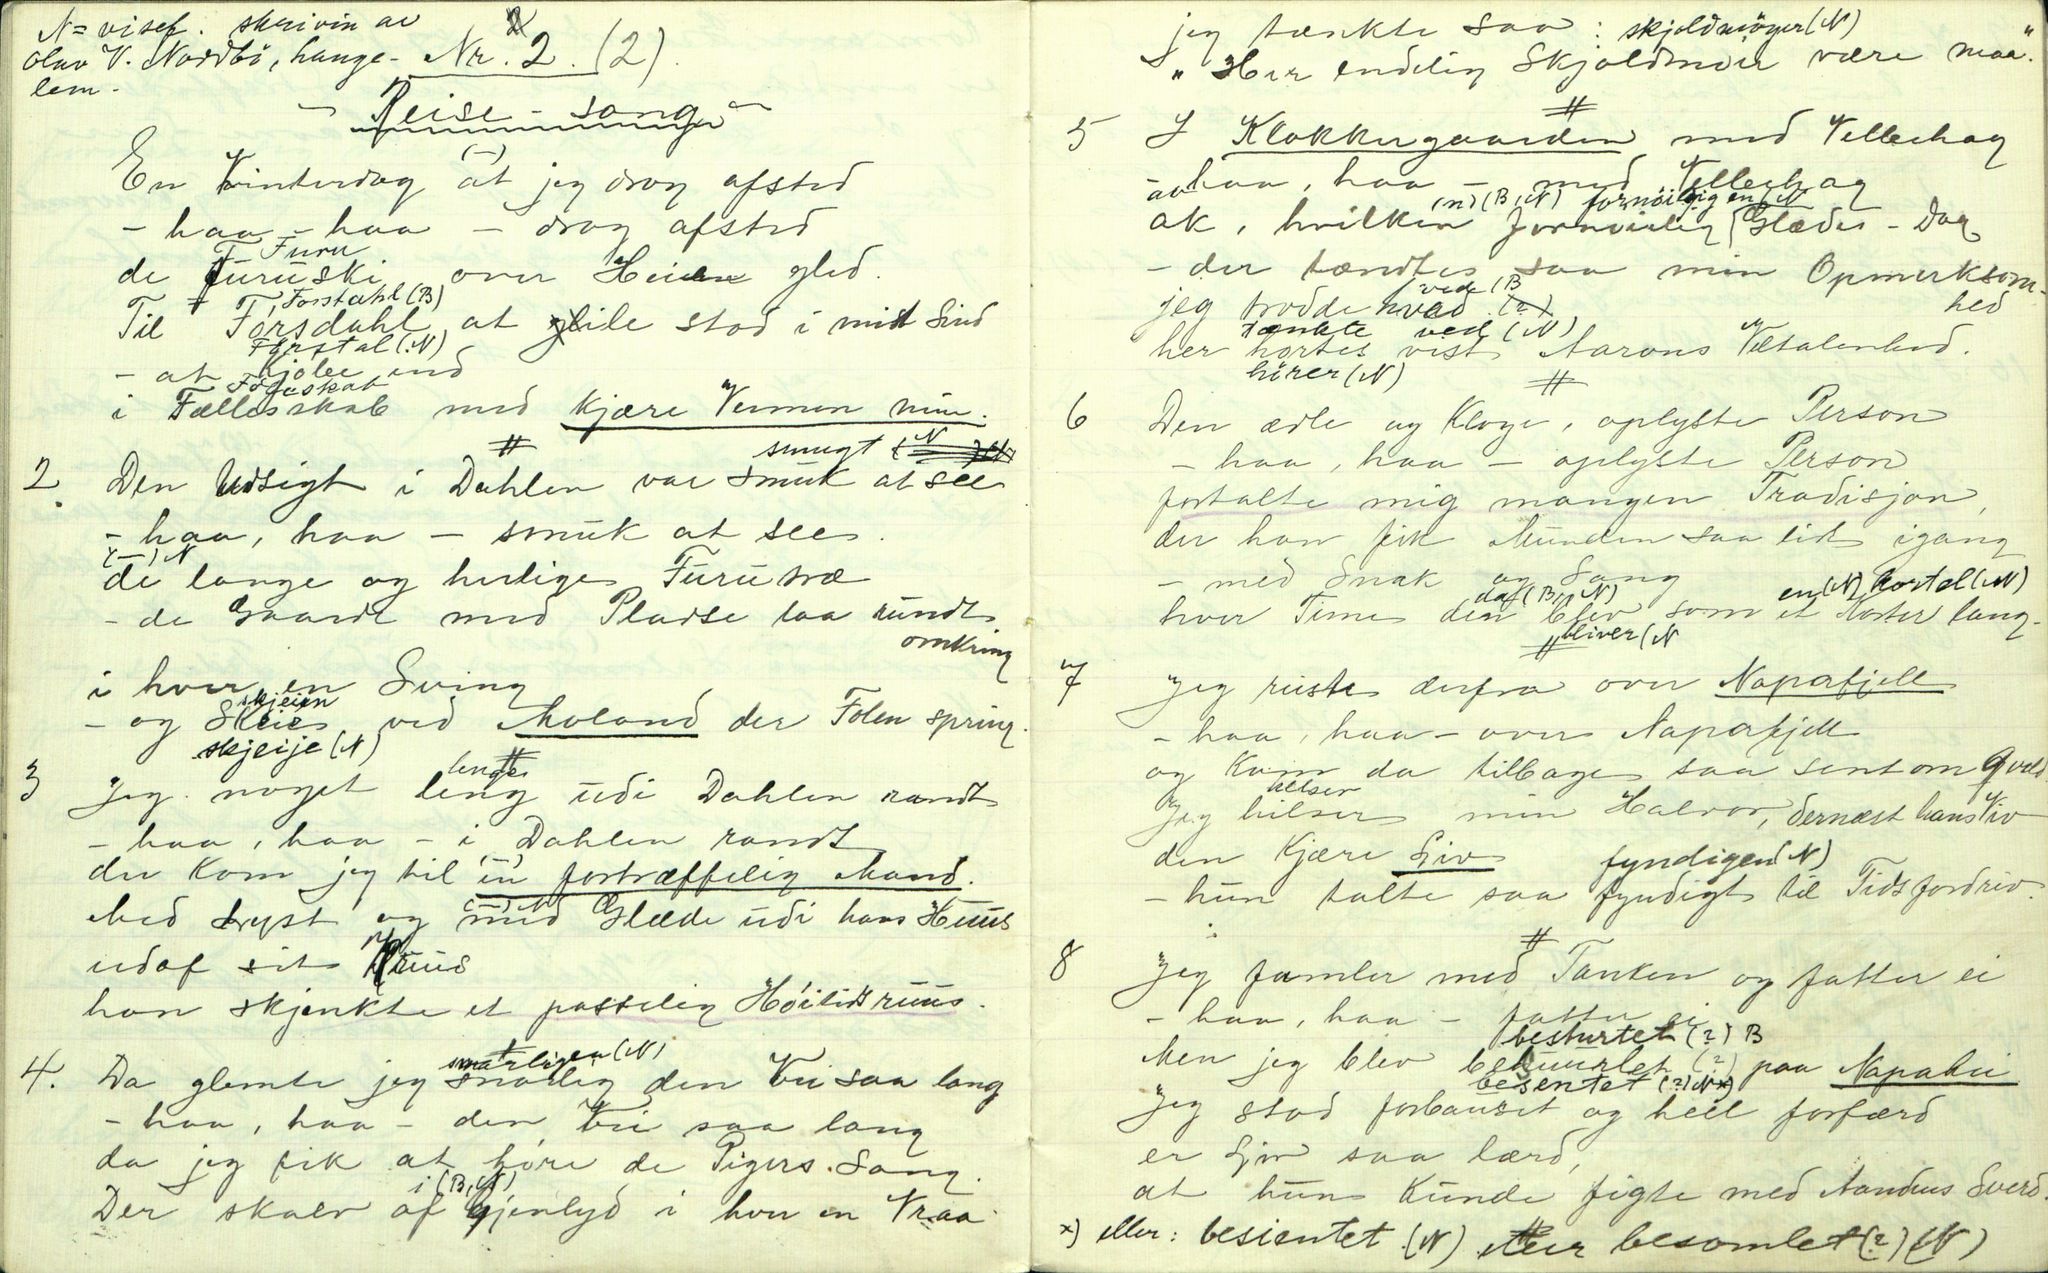 N = visef. skrivin av
Olav V. Nordbö, hange-
lem-
Nr. 2. (2).
- Reise - sang -
(-)
En Vinterdag at jeg drog afsted
- haa - haa - drog afsted
Furu
de Furuski over Heien gled.
Forstahl (B)
Til Forsdahl at ile stod i mit Sind
Forstal (N)
- at kjøle ind
i Fællesskab med kjære Vennen min.
#
smugt (N)
2. Den Udsigt i Dahlen var smuk at see
- haa, haa - smuk at see.
(-) N
de lange og herlige Furutræ
- de Gaarde med Pladse laa rundt
omkring
i hver en Sving
skjeien
- og Skeie ved Moland der Folen spring.
skjeije (N)
#
lenger
3 Jeg noget leng udi Dahlen randt
- haa, haa - i Dahlen randt
(-)
der kom jeg til en fortræffelig Mand.
(-) N
Med Lyst og med Glæde udi hans Huus
udaf sit Kruus
han skjenkte et passelig Høitidsruus.
snarligen (N)
4. Da glemte jeg snarlig den Vei saa lang
- haa, haa - den Vei saa lang
da jeg fik at høre de Pigers Sang.
i (B, N)
Der skalv af Gjenlyd i hver en Vraa
jeg tænkte saa: skjoldmöyer (N)
"Her endelig Skjoldmøer være maa."
#
5 I Klokkergaarden med Velbehag
- haa, haa - med Velbehag
(n) (B, N) fornöieligen N
ak, hvilken fornøielig Glædes-Dag
- der tændtes saa min Opmerksom-
hed
vede (B
jeg trodde hvad (?)
tænkte ved (N)
her hørtes vist Aarons Veltalenhed.
hörer (N)
#
6 Den ædle og kloge, oplyste Person
- haa, haa - oplyste Person
fortalte mig mangen Tradisjon,
der han fik Munden saa lidt igang
- med Snak og Sang
da (B, N) en (N) kortel (N)
hver Time den blev som et Korter lang.
bliver (N
#
7 Jeg reiste derfra over Napafjell
- haa, haa - over Napafjell
og kom da tilbage saa sent om Qveld.
helser
Jeg hilser min Halvor, dernæst hans Viv
den kjære Liv
fyndigen (N)
- hun talte saa fyndigt til Tidsfordriv.
#
8 Jeg famler med Tanken og fatter ei
- haa, haa - fatter ei
besturtet (?) B
Men jeg blev (?) paa Napahei
besentet (?) N x)
Jeg stod forbauset og heel forfærd
er Liv saa lærd,
at hun kunde figte med Aandens Sverd.
x) eller: besientet (N) eller besomlet (?) (N)